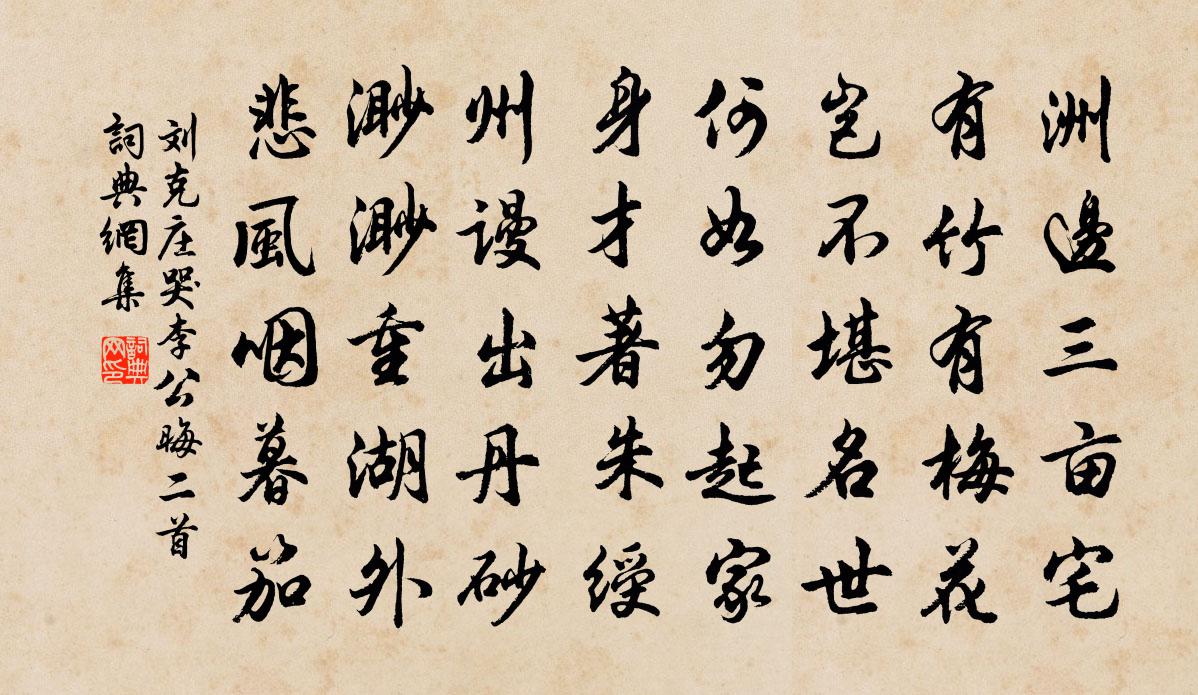 洲邊三亩宅
有竹有梅花
岂不堪名世
何如勿起家
身才著朱綬
州謾出丹砂
渺渺重湖外
悲風咽暮笳
刘克庄哭李公晦二首
詞典網集
詞典網印